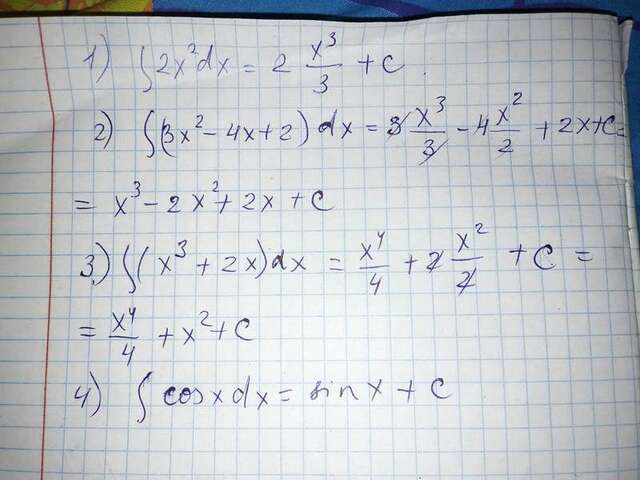 1) ∫2x²dx = 2 x³/3 + C.
2) ∫(3x² - 4x + 2) dx = 3 x³/3 - 4 x²/2 + 2x + C =
= x³ - 2x² + 2x + C
3.) ∫(x³ + 2x)dx = x⁴/4 + 2 x²/2 + C =
= x⁴/4 + x² + C
4) ∫ cosx dx = sin x + C